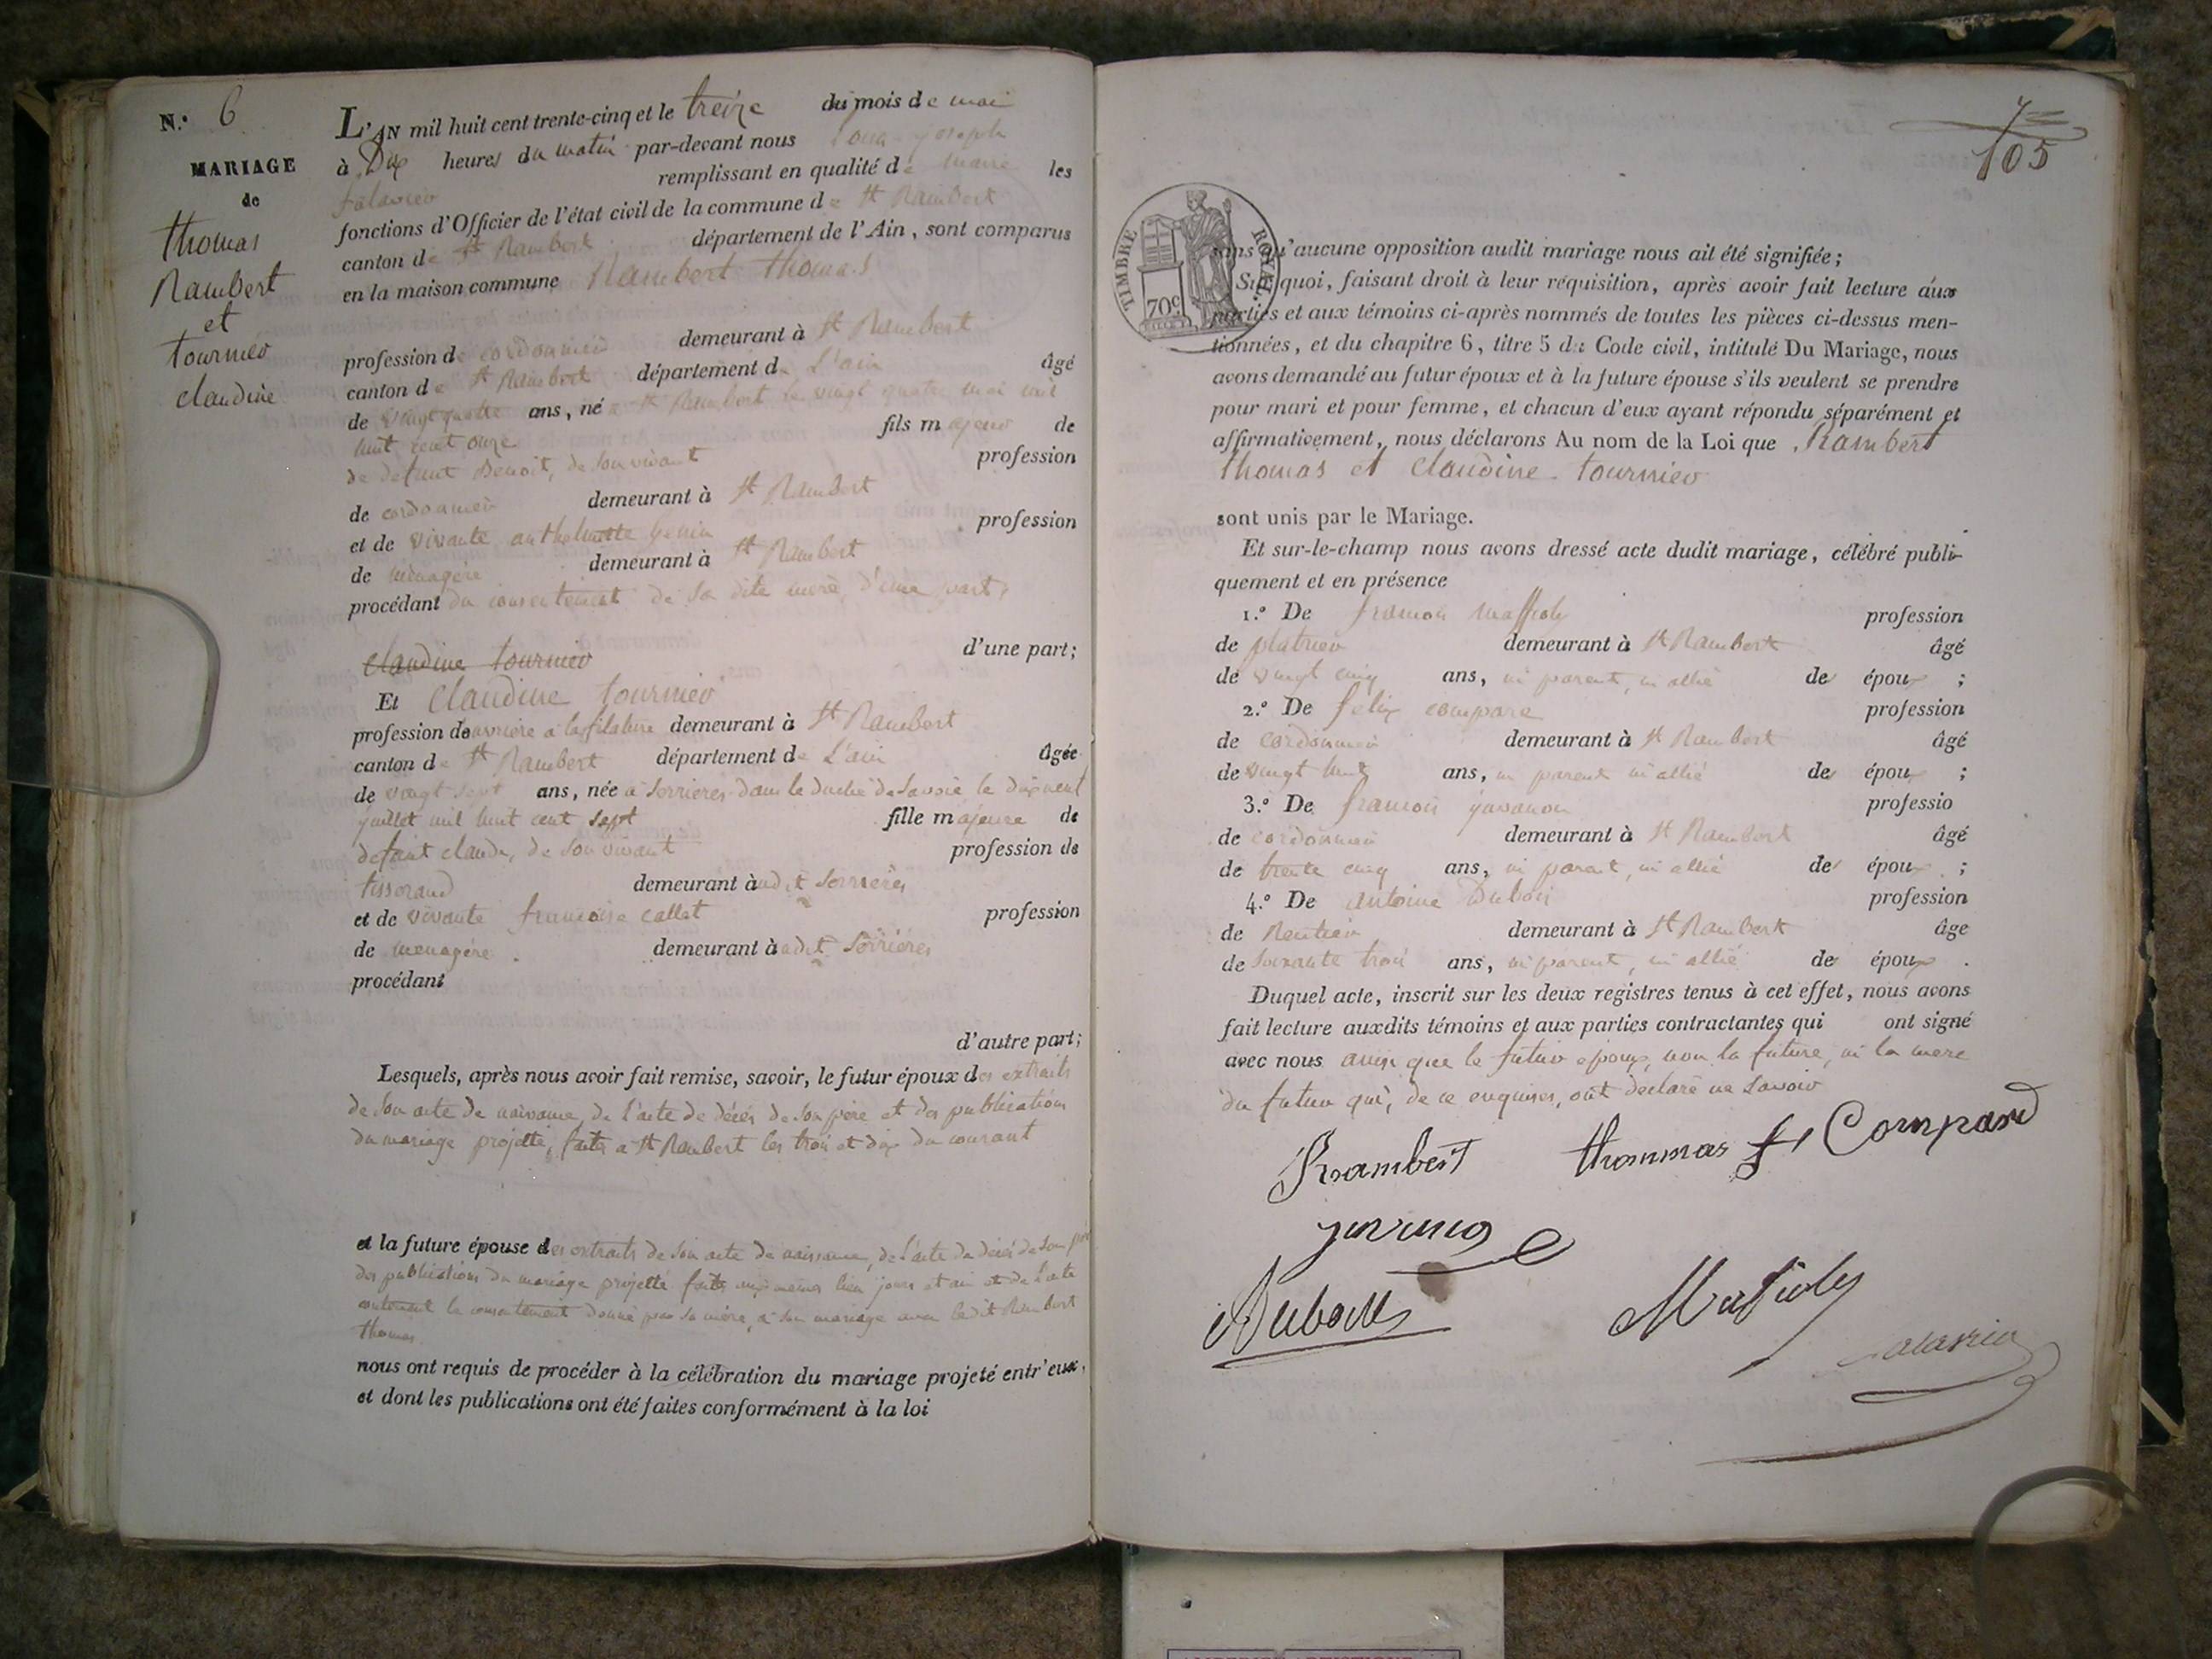 N.º 6
MARIAGE
de
thomas
Rambert
et
tournier
claudine
L'AN mil huit cent trente-cinq et le treize du mois de mai
à Dix heures du matin par-devant nous joseph
remplissant en qualité de maire les
fonctions d'Officier de l'état civil de la commune de St Rambert
canton de St Rambert département de l'Ain, sont comparus
en la maison commune Rambert thomas
profession de cordonnier demeurant à St Rambert
canton de St Rambert département de L'ain âgé
de vingt quatre ans, né a St Rambert le vingt quatre mai mil
huit cent onze fils majeur de
de defunt Benoit, de son vivant profession
de cordonnier demeurant à St Rambert
et de vivante anthelmette profession
de ménagère demeurant à St Rambert
procédant du consentement de sa dite mère, d'une part,
claudine tournier d'une part;
Et Claudine tournier
profession de ouvrière a la filature demeurant à St Rambert
canton de St Rambert département de L'ain âgée
de vingt sept ans, née a Serrieres dans le duché de Savoie le dix neuf
juillet mil huit cent sept fille majeure de
defunt claude, de son vivant profession de
tisserand demeurant à audit Serrières
et de vivante françoise callet profession
de menagère demeurant à audit Serrières
procédant
d'autre part;
Lesquels, après nous avoir fait remise, savoir, le futur époux des extraits
de son acte de naissance, de l'acte de décès de son père et des publications
du mariage projetté, faites a St Rambert les trois et dix du courant
et la future épouse des extraits de son acte de naissance, de l'acte de décès de son père
des publications du mariage projetté faites aux mêmes lieu jours et an et de l'acte
contenant le consentement donné par sa mère, à son mariage avec ledit Rambert
thomas
nous ont requis de procéder à la célébration du mariage projeté entr'eux,
et dont les publications ont été faites conformément à la loi
105
TIMBRE ROYAL
70c
sans qu'aucune opposition audit mariage nous ait été signifiée;
Sur quoi, faisant droit à leur réquisition, après avoir fait lecture aux
parties et aux témoins ci-après nommés de toutes les pièces ci-dessus men-
tionnées, et du chapitre 6, titre 5 du Code civil, intitulé Du Mariage, nous
avons demandé au futur époux et à la future épouse s'ils veulent se prendre
pour mari et pour femme, et chacun d'eux ayant répondu séparément et
affirmativement, nous déclarons Au nom de la Loi que Rambert
thomas et Claudine tournier
sont unis par le Mariage.
Et sur-le-champ nous avons dressé acte dudit mariage, célébré publi-
quement et en présence
1.º De françois profession
de platrier demeurant à St Rambert âgé
de vingt cinq ans, ni parent, ni allié des époux ;
2.º De felix compare profession
de cordonnier demeurant à St Rambert âgé
de vingt huit ans, ni parent ni allié des époux ;
3.º De françois profession
de cordonnier demeurant à St Rambert âgé
de trente cinq ans, ni parent, ni allié des époux ;
4.º De antoine Dubois profession
de Rentier demeurant à St Rambert âge
de Soixante trois ans, ni parent, ni allié des époux .
Duquel acte, inscrit sur les deux registres tenus à cet effet, nous avons
fait lecture auxdits témoins et aux parties contractantes qui ont signé
avec nous ainsi que le futur époux, non la future, ni la mere
du futur qui, de ce enquises, ont déclaré ne savoir
Rambert thommas Compare
Dubois